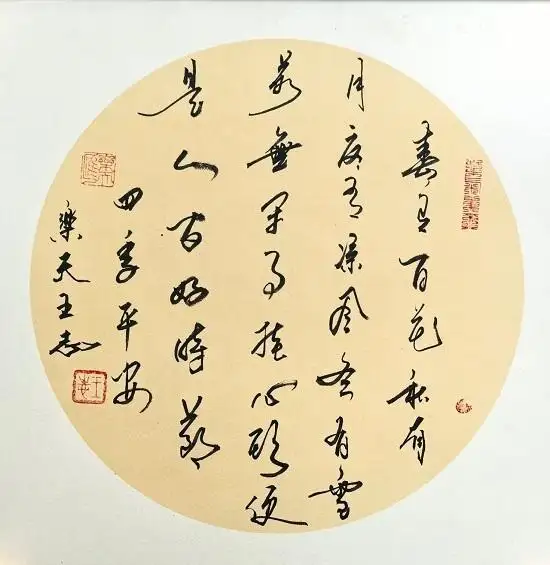 春有百花秋有
月夏有凉風冬有雪
若無閑事挂心頭便
是人間好時節
四季平安
樂天王志